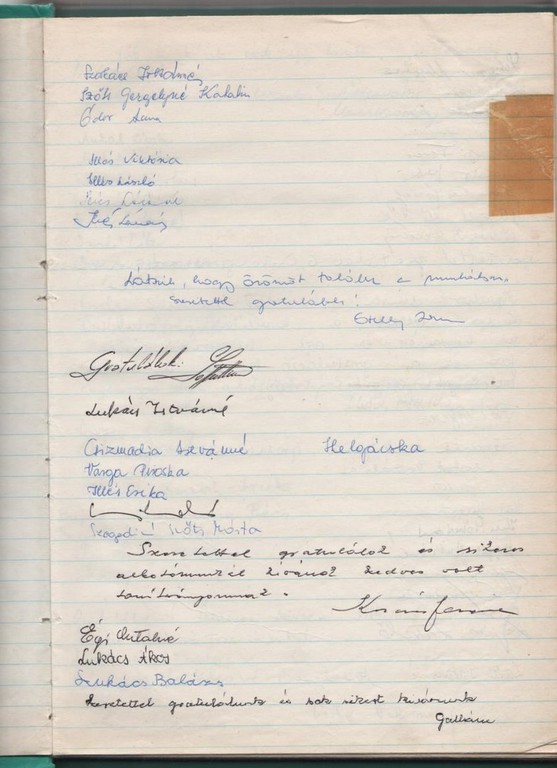 Szőke Gergelyné Katalin
Ódor Anna
Illés Viktória
Illés László
Illés
Látszik, hogy örömöt talál a munkában.
Szeretettel gratulálok!
Gratulálok:
Lukács Istvánné
Csizmadia Istvánné Helgácska
Varga Piroska
Illés Erika
Szegediné Márta
Szeretettel gratulálok és sikeres
alkotómunkát kívánok kedves volt
tanítványomnak.
Égi Antalné
Lukács Ákos
Lukács Balázs
Szeretettel gratulálunk és sok sikert kívánunk